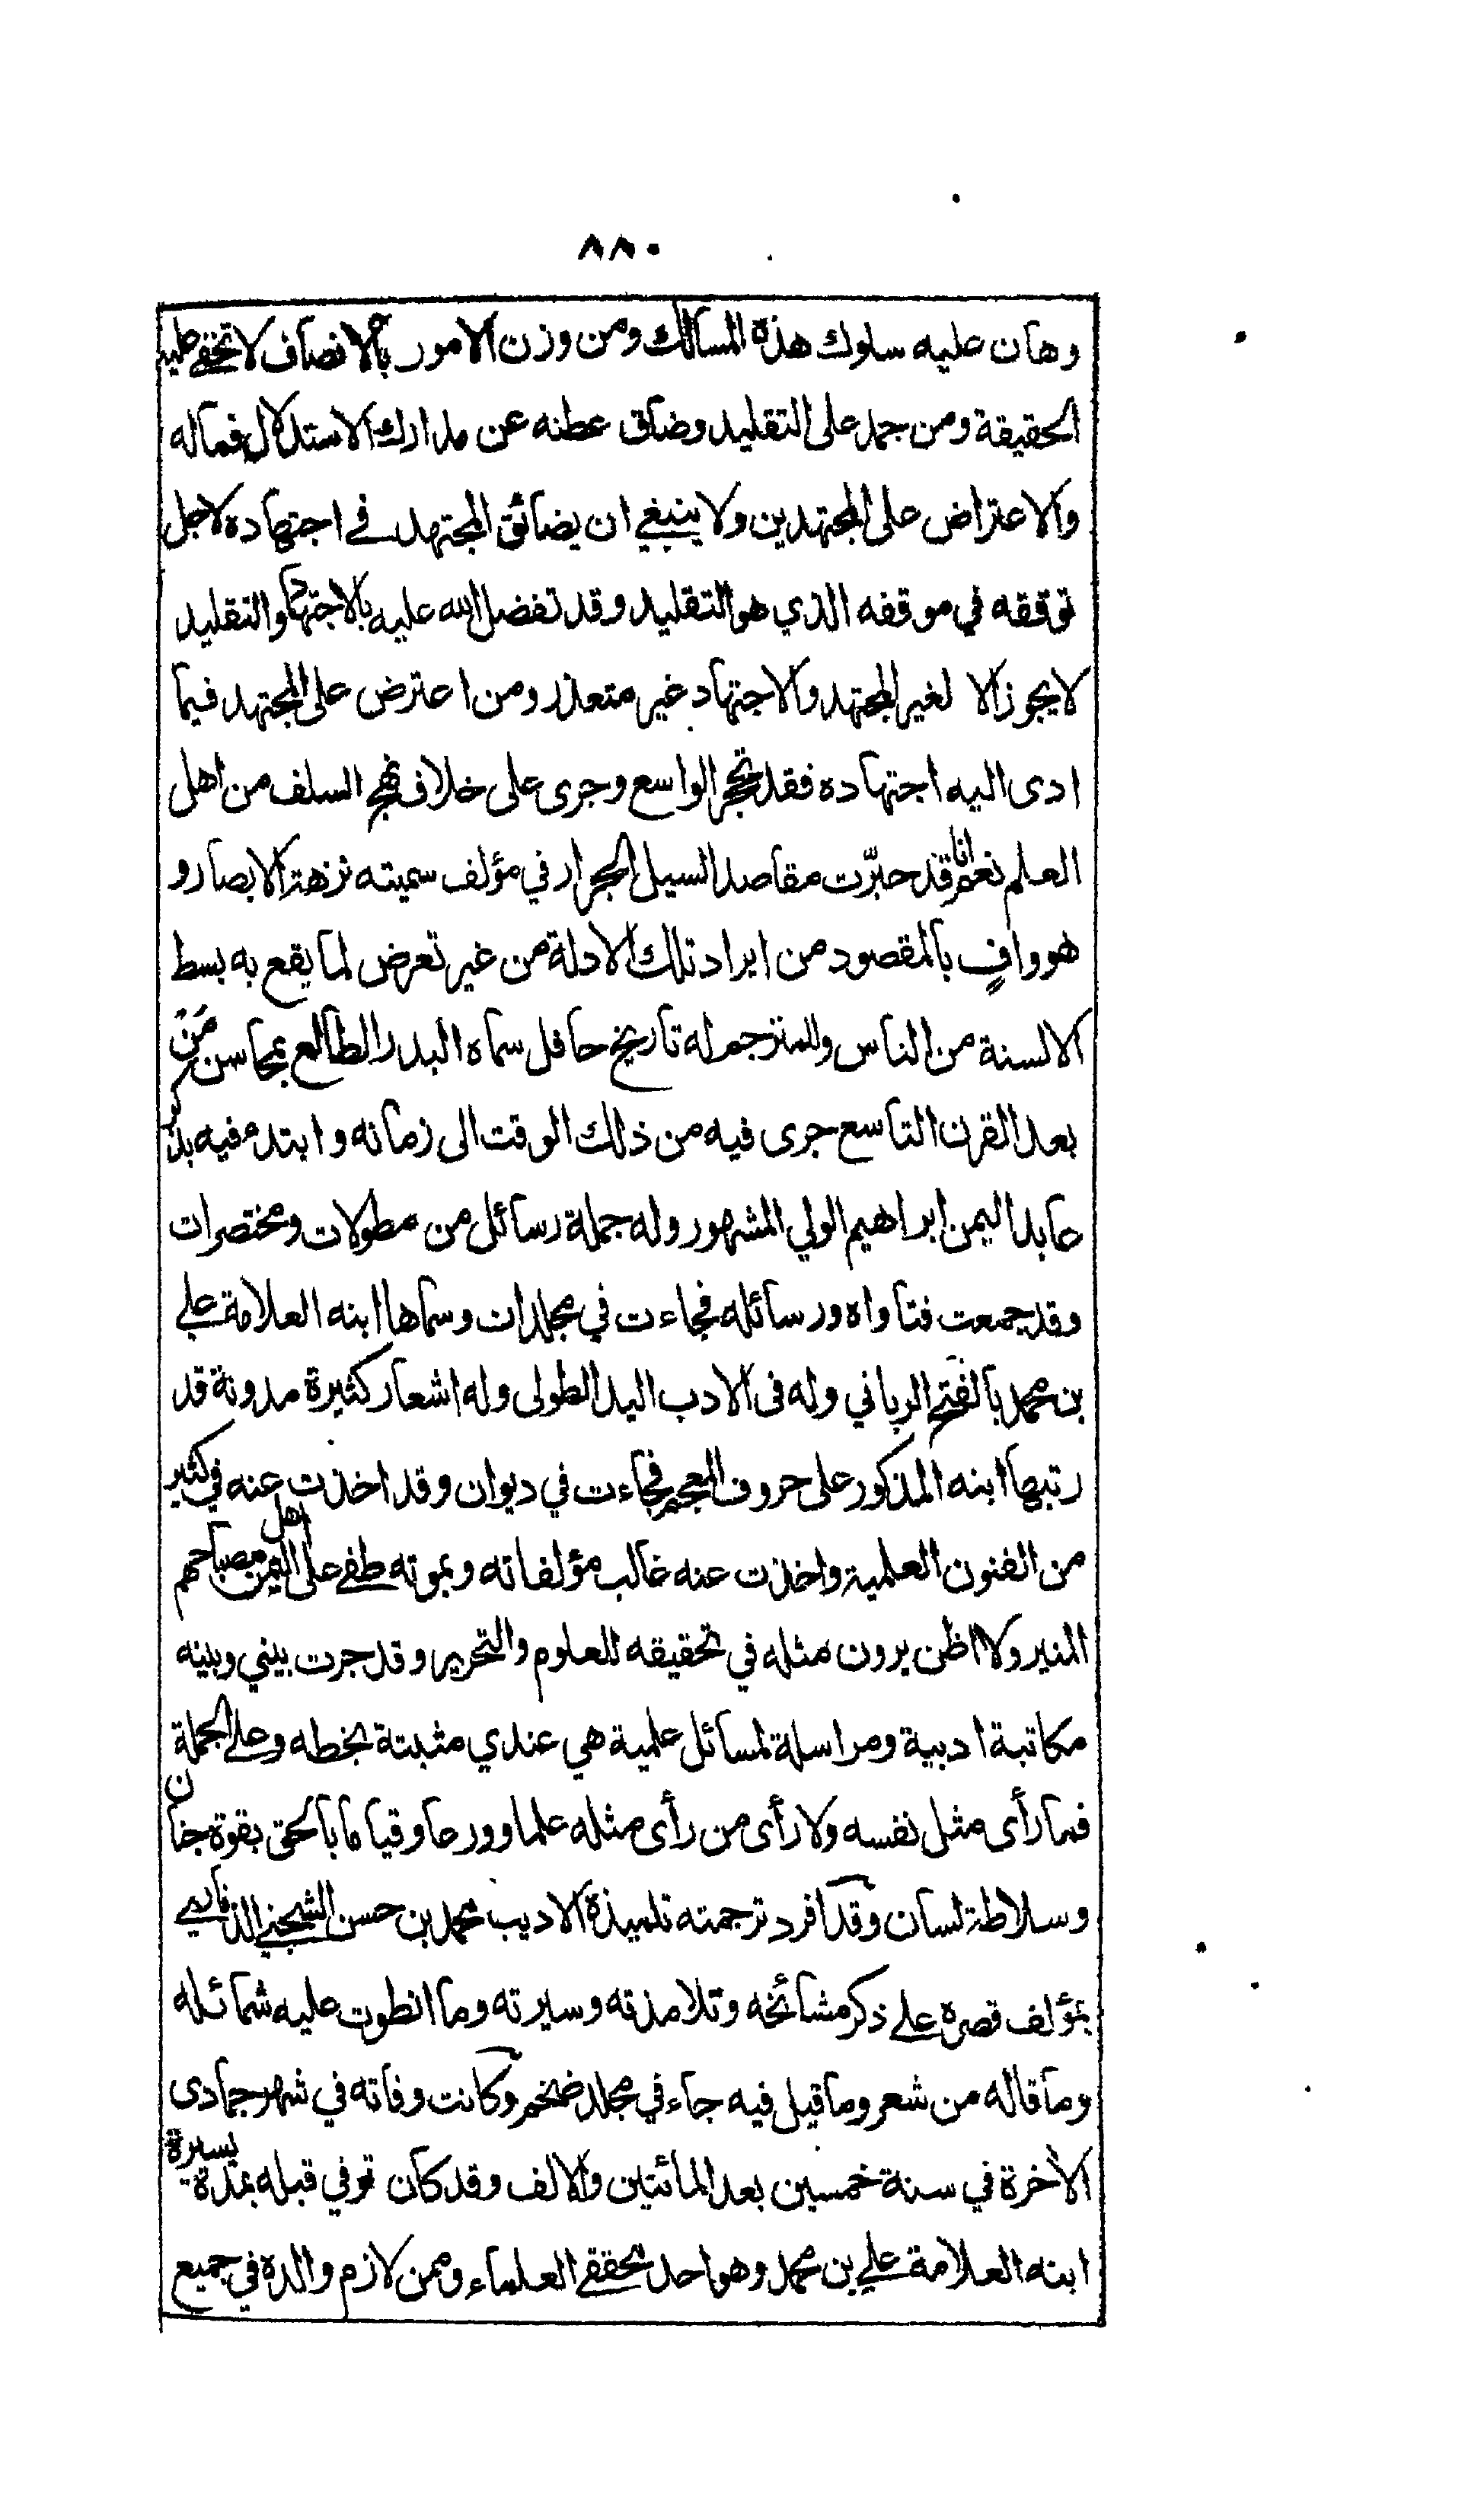 ٨٨٠
وهان عليه سلوك هذه المسالك ومن وزن الامور بالانصاف لا تخفى عليه
الحقيقة ومن جمد على التقليد وضاق عطنه عن مدارك الاستدلال فماله
والاعتراض على المجتهدين ولا ينبغي ان يضائق المجتهد في اجتهاده لاجل
توقفه في موقفه الذي هو التقليد وقد تفضل الله عليه بالاجتهاد والتقليد
لا يجوز الا لغير المجتهد والاجتهاد غير متعذر ومن اعترض على المجتهد فيما
ادى اليه اجتهاده فقد تحجر الواسع وجرى على خلاف نهج السلف من اهل
العلم نعم انا قد حبرّت مقاصد السيل الجرار في مؤلف سميته نزهة الابصار و
هو وافٍ بالمقصود من ايراد تلك الادلة من غير تعرض لما يقع به بسط
الالسنة من الناس وللمترجم له تاريخ حافل سماه البدر الطالع بمحاسن مَنْ
بعد القرن التاسع جرى فيه من ذلك الوقت الى زمانه وابتدء فيه بذكر
عابد اليمن ابراهيم الولي المشهور وله جملة رسائل من مطولات ومختصرات
وقد جمعت فتاواه ورسائله فجاءت في مجلدات وسماها ابنه العلامة علي
بن محمد بالفتح الرباني وله فى الادب اليد الطولى وله اشعار كثيرة مدونة قد
رتبها ابنه المذكور على حروف المعجم فجاءت في ديوان وقد اخذت عنه في كثير
من الفنون العلمية واخذت عنه غالب مؤلفاته وبموته طفى على اهل اليمن مصباحهم
المنير ولا اظن يرون مثله في تحقيقه للعلوم والتحرير وقد جرت بيني وبينه
مكاتبة ادبية ومراسلة لمسائل علمية هي عندي مثبتة بخطه وعلى الجملة
فما رأى مثل نفسه ولا رأى من رأى مثله علما وورعا وقياما بالحق بقوة جنان
وسلاطة لسان وقد افرد ترجمته تلميذه الاديب محمد بن حسن الشجني الذماري
بمؤلف قصره على ذكر مشائخه وتلامذته وسيرته وما انطوت عليه شمائله
وما قاله من شعر وما قيل فيه جاء في مجلد ضخم وكانت وفاته في شهر جمادى
الاخرة في سنة خمسين بعد المائتين والالف وقد كان توفي قبله بمدة يسيرة
ابنه العلامة علي بن محمد وهو احد محققي العلماء وممن لازم والده في جميع